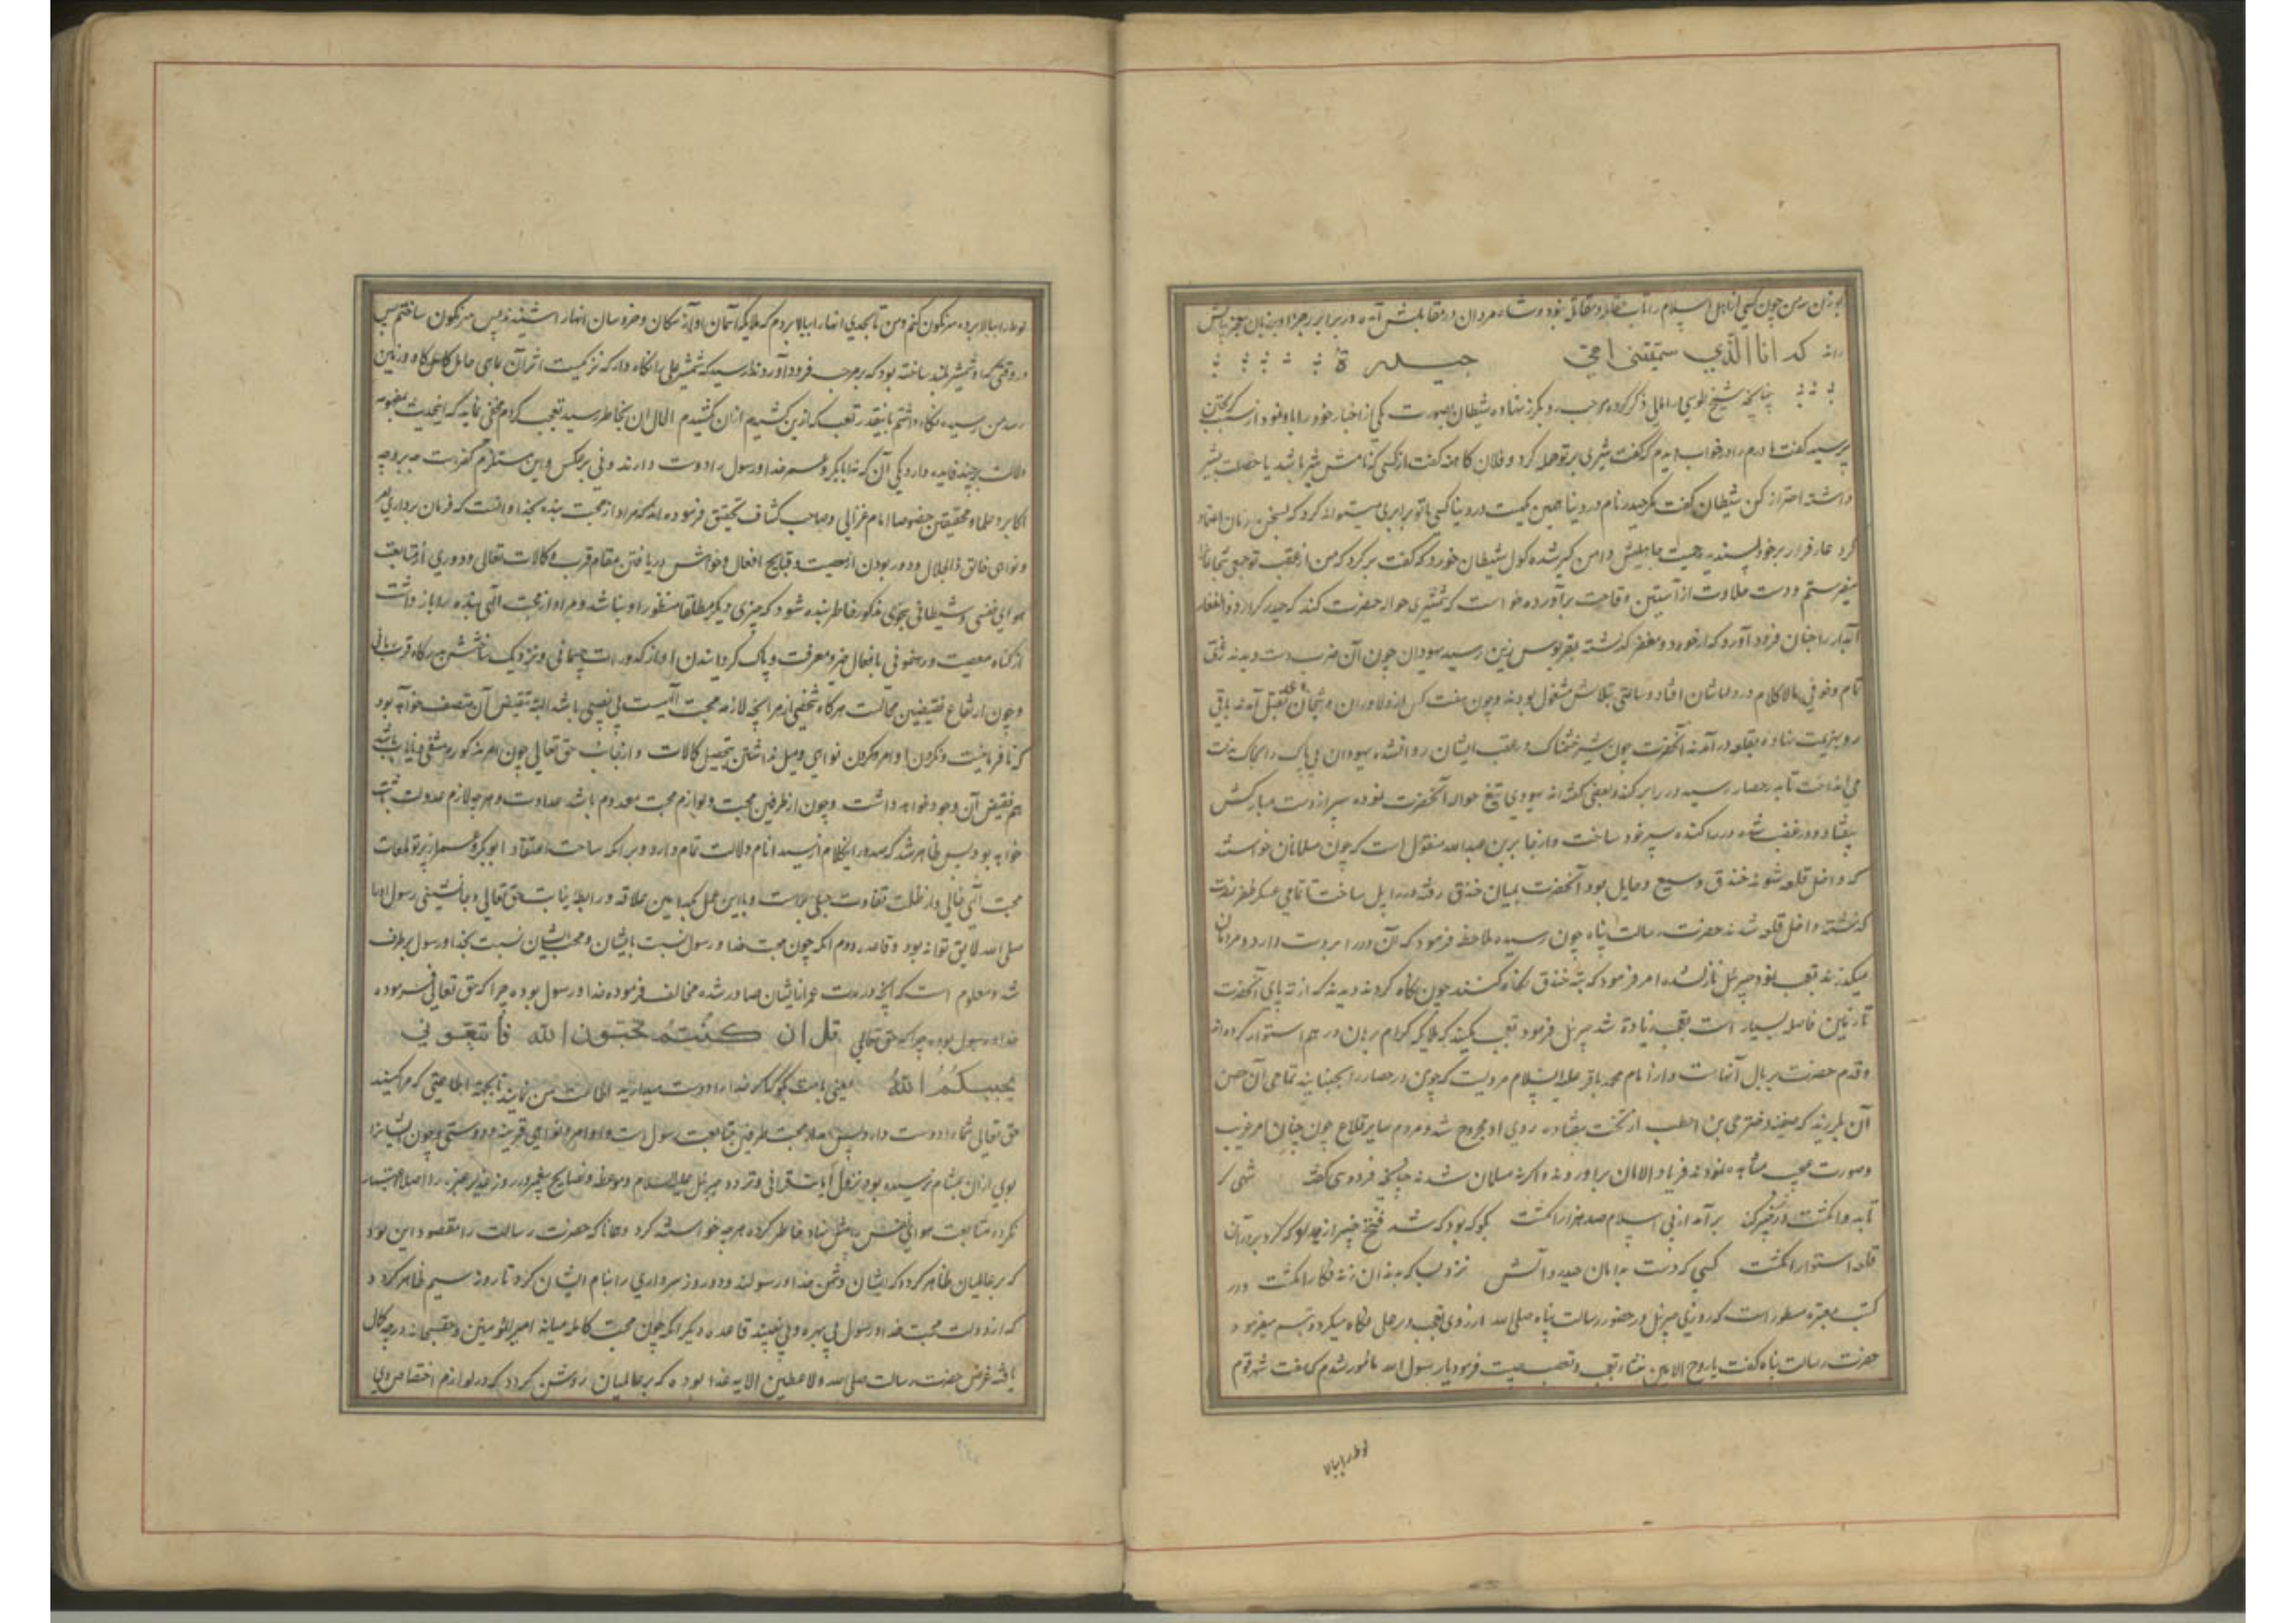 بوزن من چون کسی از اهل اسلام را تاب مقابله و مقاتله نبود و شاه مردان در مقابلش آمده در برابر رجز او بزبان معجز بیانش
راند که انا الّذي سمّتني امّي حيدرة
چنانچه شیخ طوسی در امالی ذکر کرده مرحب رو بگریز نهاده شیطان بصورت یکی از احبار خود را باو نمود از سبب گریختن
پرسید گفت مادرم را در خواب دیدم که گفت شیری بر تو حمله کرد و فلان کاهنه گفت از کسی که نامش شیر باشد یا خصلت شیر
داشته احتراز کن شیطان گفت مگر حیدر نام در دنیا همین یکیست در دنیا کسی با تو برابری میتواند کرد که بسخن زنان اعتماد
کرد عار فرار بر خود پسندید حمیت جاهلیتش دامن گیر شده گول شیطان خورد که گفت برگرد که من از عقب تو جمعی شجاعان
میفرستم و دست جلادت از آستین وقاحت برآورده خواست که شمشیری حواله حضرت کند که حیدر کرار ذوالفقار
آبدار را چنان فرود آورد که از خود و مغفر گذشته بقربوس زین رسید یهودان چون آن ضرب دست دیدند قلق
تمام و خوفی مالاکلام در دلهاشان افتاد و ساعتی بتلاش مشغول بودند و چون هفت کس از دلاوران و شجعان بقتل آمدند باقی
رو بهزیمت نهاده بقلعه درآمدند آنحضرت چون شیر خشمناک در عقب ایشان روان شده یهودان بی باک را بخاک مذلت
می انداخت تا بدر حصار رسید و در را برکند و بعضی گفته اند یهودی تیغ حواله آنحضرت نموده سپر از دست مبارکش
بیفتاد و در غضب شده در را کنده سپر خود ساخت و از جابر بن عبدالله منقول است که چون مسلمانان خواستند
که داخل قلعه شوند خندق وسیع و حایل بود آنحضرت بمیان خندق رفته در را پل ساخت تا تمامی عسکر ظفر نصرت
گذشته داخل قلعه شدند حضرت رسالت پناه چون رسیده ملاحظه فرمود که آن در را بر دست دارد و مردمان
میگذرند تعجب نمود جبرئیل نازل شده امر فرمود که بته خندق نگاه کنند چون نگاه کردند دیدند که از ته پای آنحضرت
تا زمین فاصله بسیار است تعجب زیاده شد جبرئیل فرمود تعجب میکنید که ملائکه کرام پرها در هم استوار کرده اند
و قدم حضرت بر بال آنهاست و از امام محمد باقر علیه السلام مرویست که چون در حصار را بجنبانید تمامی آن حصن
آن بلرزید که صفیه دختر حی بن اخطب از تخت بیفتاد و روی او مجروح شد و مردم سایر قلاع چون چنان امر غریب
و صورت عجیب مشاهده نمودند فریاد الامان برآوردند و اکثر مسلمان شدند چنانچه فردوسی گفته شعر
تا بدو انگشت در خیبر کند برآمد از پی اسلام صد هزار انگشت بگو که بود که شد فتح خیبر از حیدر که کرد بر در آن
قلعه استوار انگشت کسی که دست بدامان حیدر و آلش نزد لب که بدندان زند فکار انگشت و در
کتب معتبره مسطور است که روزی جبرئیل در حضور رسالت پناه صلی الله از روی تعجب در علی نگاه میکرد و تبسم میفرمود
حضرت رسالت پناه گفت یا روح الامین منشاء تعجب و تبسم چیست فرمود یا رسول الله مامور شدم که هفت شهر قوم
لوط را ببالا
لوط را ببالا برده سرنگون کنم و من تا بحدی انها را ببالا بردم که ملائکه آسمان آواز سگان و خروسان انها را شنیدند پس سرنگون ساختم پس
در وقتی که او شمشیر بلند ساخته بود که بر مرحب فرود آورد ندا رسید که شمشیر علی را نگاه دار که نزدیکست اثر آن بماهی حامل گاو و زمین
رسد من رسیده نگاه داشتم بانقدر تعب که ازین کشیدم ازان نکشیدم الحال ان بخاطر رسید تعجب کردم مخفی نماند که اینحدیث بمفهومه
دلالت بر چند فایده دارد یکی آن که نه ابابکر و عمر خدا و رسول را دوست دارند و نی بر عکس و این مستلزم کفرست چه بر وجه
اکابر و علما و محققین خصوصا امام غزالی و صاحب کشاف تحقیق فرموده اند که مراد از محبت بنده بخدا و انست که فرمان برداری امر
و نواهی خالق ذالجلال و دور بودن از معصیت و قبایح افعال و خواهش دریافتن مقام قرب و کمالات تعالی و دوری از متابعت
هوای نفسی و شیطانی بنحوی مذکور خاطر بنده شود که چیزی دیگر مطلقا منظور او نباشد و مراد از محبت الهی بنده را باز داشت
از گناه و معصیت و رهنمونی بافعال خیر و معرفت و پاک گردانیدن او از کدورات جسمانی و نزدیک ساختنش بدرگاه قرب ربانی
و چون ارتفاع نقیضین محالست هرگاه شخصی از هر آنچه لازمه محبت الهیست بی نصیبی باشد البته بنقیض آن متصف خواهد بود
که نافرمانیست و نکردن اوامر و کردن نواهی و میل نداشتن بتحصیل کمالات و از جانب حق تعالی چون امر مذکور منتفی و نایاب باشد
هم نقیض آن وجود خواهد داشت و چون از طرفین محبت و لوازم محبت معدوم باشد عداوت و هر چه لازم عدوت ثابت
خواهد بود پس ظاهر شد که صدور اینکلام از سید انام دلالت تمام دارد و برانکه ساحت اعتقاد ابوبکر و عمر از پرتو لمعات
محبت الهی خالی و از ظلمت تفاوت جبلی مملوست و با این عمل کدامین علاقه و رابطه نیابت حق تعالی و جانشینی رسول او را
صلی الله لایق تواند بود و قاعده دوم انکه چون محبت خدا و رسول نسبت بایشان و محبت ایشان نسبت بخدا و رسول برطرف
شد و معلوم است که آنچه در مدت عمر از ایشان صادر شده مخالف فرموده خدا و رسول بوده چرا که حق تعالی فرموده
خدا و رسول بوده چرا که حق تعالی قل ان كنتم تحبّون الله فاتّبعوني
يحببكم الله یعنی بامت بگو که اگر خدا را دوست میدارید اطاعت من نمایند تا بجهة اطاعتی که مرا کنند
حق تعالی شما را دوست دارد پس مدار محبت طرفین بمتابعت رسول است و اوامر و نواهی قرینه دوستی و چون ایشانرا
بویی ازان بمشام نرسیده بود نزول آیات قرانی و تردد جبرئیل علیه السلام و موعظه و نصایح پیغمبر در روز غدیر خم و اصلا اعتبار
نکرده متابعت هوای نفس را پیش نهاد خاطر کرده هر چه خواستند کرد و همانا که حضرت رسالت را مقصود این بود
که بر عالمیان ظاهر گردد که ایشان دشمن خدا و رسولند و دو روز سرداری را بنام ایشان کرد تا روز سیم ظاهر کرد
که از دولت محبت خدا و رسول بی بهره و بی نصیبند قاعده دیگر انکه چون محبت کامله میانه امیرالمومنین و حق سبحانه درجه کمال
یافته غرض حضرت رسالت صلی الله و لاعطین الرایه غدا بوده که بر عالمیان روشن گردد که در لوازم اختصاص وی